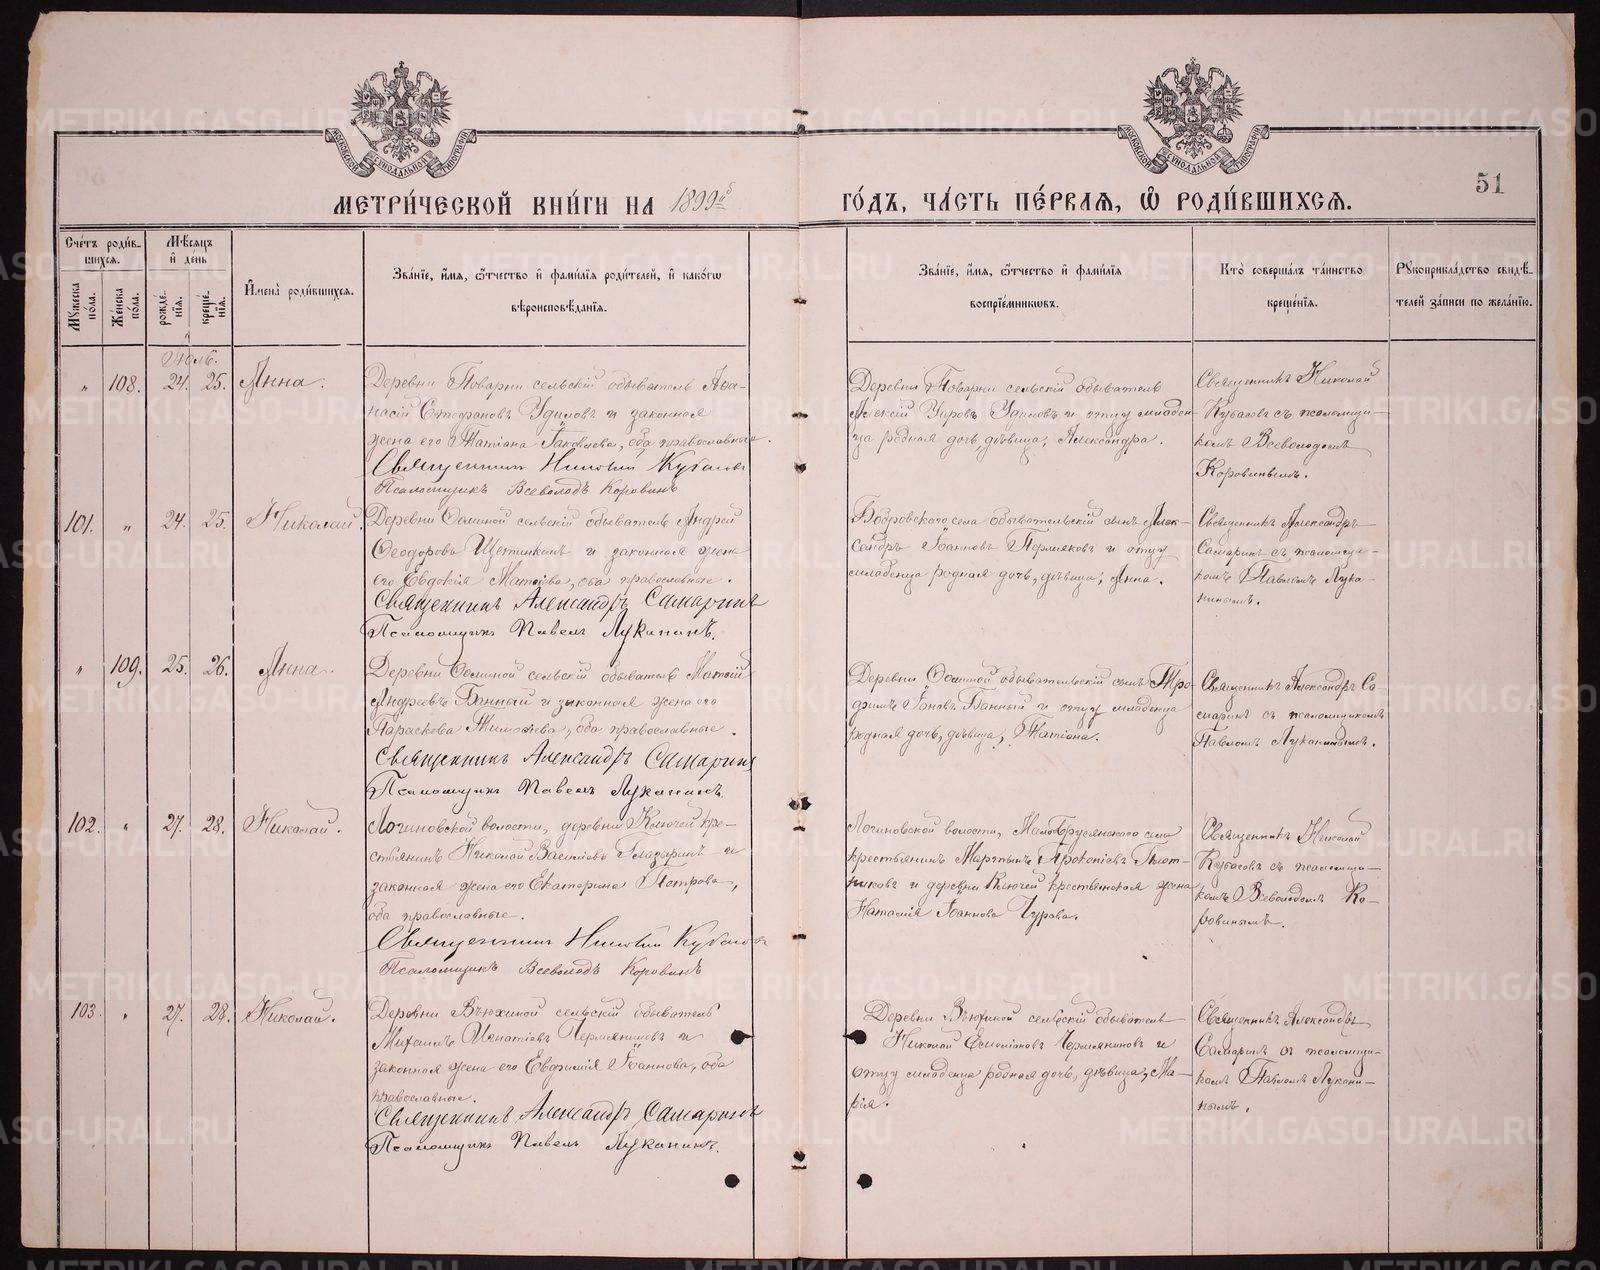 МОСКОВСКОЙ СѴНОДАЛЬНОЙ ТИПОГРАФІИ
МОСКОВСКОЙ СѴНОДАЛЬНОЙ ТИПОГРАФІИ
51
МЕТРИ́ЧЕСКОЙ КНИ́ГИ НА 1899й
ГО́ДЪ, ЧА́СТЬ ПЕ́РВАЯ, Ѡ҆ РОДИ́ВШИХСЯ.
Сче́тъ роди́в-
шихся.
Мꙋ́жеска по́ла.
Же́нска по́ла.
Мѣ́сяцъ и҆ де́нь
рожде́нїя.
креще́нїя.
И҆мена̀ роди́вшихся.
Зва́нїе, и҆́мя, ѻ҆́тчество и҆ фами́лїя роди́телей, и҆ како́гѡ
вѣроисповѣ́данїя.
Зва́нїе, и҆́мя, ѻ҆́тчество и҆ фами́лїя
воспрїе́мникѡвъ.
Кто̀ соверша́лъ та́инство
креще́нїя.
Рꙋкоприкла́дство свидѣ́-
телей за́писи по жела́нїю.
Іюль.
" 108. 24. 25. Анна.
Деревни Поварни сельскій обыватель Аѳа-
насій Стефановъ Удиловъ и законная
жена его Татіана Іаковлева, оба православные.
Священникъ Николай Кубасовъ
Псаломщикъ Всеволодъ Коровинъ
Деревни Поварни сельскій обыватель
Алексій Уаровъ Удиловъ и отцу младен-
ца родная дочь, дѣвица, Александра.
Священникъ Николай
Кубасовъ съ псаломщи-
комъ Всеволодомъ
Коровинымъ.
101. " 24. 25. Николай.
Деревни сельскій обыватель Андрей
Ѳеодоровъ Щетинкинъ и законная жена
его Евдокія Матѳіева, оба православные.
Священникъ Александръ Самаринъ
Псаломщикъ Павелъ Луканинъ.
Бобровскаго села обывательскій сынъ Алек-
сандръ Іоанновъ Пермяковъ и отцу
младенца родная дочь, дѣвица, Анна.
Священникъ Александръ
Самаринъ съ псаломщи-
комъ Павломъ Лука-
нинымъ.
" 109. 25. 26. Анна.
Деревни сельскій обыватель Матѳій
Андреевъ Банный и законная жена его
Параскева Тимоѳеева, оба православные.
Священникъ Александръ Самаринъ
Псаломщикъ Павелъ Луканинъ.
Деревни обывательскій сынъ Тро-
фимъ Іоновъ Банный и отцу младенца
родная дочь, дѣвица, Татіана.
Священникъ Александръ Са-
маринъ съ псаломщикомъ
Павломъ Луканинымъ.
102. " 27. 28. Николай.
Логиновской волости, деревни Ключей кре-
стьянинъ Николай Василіевъ Глазыринъ и
законная жена его Екатерина Петрова,
оба православные.
Священникъ Николай Кубасовъ
Псаломщикъ Всеволодъ Коровинъ
Логиновской волости, Малобрусянскаго села
крестьянинъ Мартынъ Прокопіевъ Плот-
никовъ и деревни Ключей крестьянская жена
Наталія Іоаннова Чурова.
Священникъ Николай
Кубасовъ съ псаломщи-
комъ Всеволодомъ Ко-
ровинымъ.
103. " 27. 28. Николай.
Деревни Вьюхиной сельскій обыватель
Михаилъ Игнатіевъ Чермяниновъ и
законная жена его Евфимія Іоаннова, оба
православные.
Священникъ Александръ Самаринъ
Псаломщикъ Павелъ Луканинъ.
Деревни Вьюхиной сельскій обыватель
Николай Емеліановъ Чермяниновъ и
отцу младенца родная дочь, дѣвица, Ма-
рія.
Священникъ Александръ
Самаринъ съ псаломщи-
комъ Павломъ Лукани-
нымъ.
METRIKI.GASO-URAL.RU